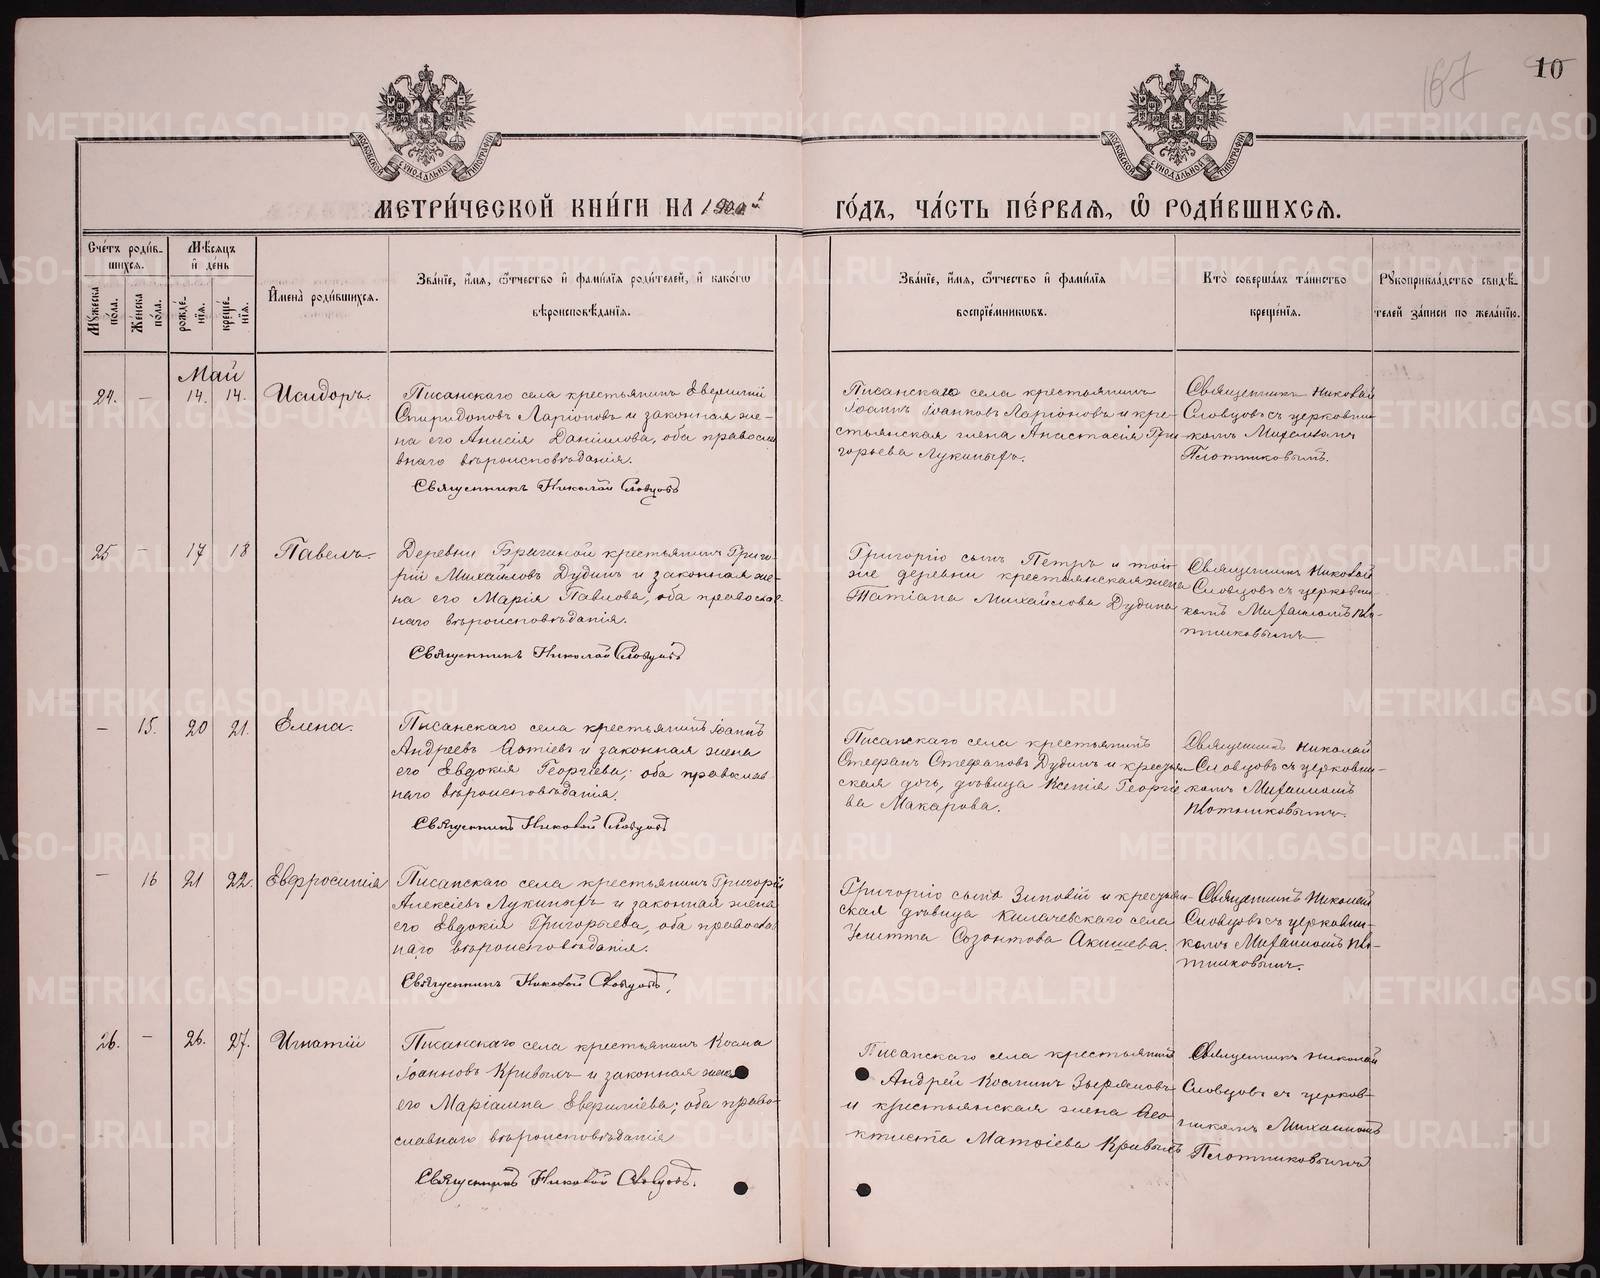 167
10
МОСКОВСКОЙ СѴНОДАЛЬНОЙ ТИПОГРАФІИ
МОСКОВСКОЙ СѴНОДАЛЬНОЙ ТИПОГРАФІИ
МЕТРИ́ЧЕСКОЙ КНИ́ГИ НА 190 й
ГО́ДЪ, ЧА́СТЬ ПЕ́РВАЯ, Ѽ РОДИ́ВШИХСЯ.
Сче́тъ роди́в-
шихся.
Мꙋ́жеска по́ла.
Же́нска по́ла.
Мѣ́сяцъ
и де́нь
рожде́-
нїя.
креще́-
нїя.
Имена̀ роди́вшихся.
Зва́нїе, и́мя, ѻ́тчество и фами́лїя роди́телей, и како́гѡ
вѣроисповѣ́данїя.
Зва́нїе, и́мя, ѻ́тчество и фами́лїя
воспрїе́мникѡвъ.
Кто̀ соверша́лъ та́инство
креще́нїя.
Рꙋкоприкла́дство свидѣ́-
телей за́писи по жела́нїю.
Май
24. — 14. 14. Исидоръ.
Писанскаго села крестьянинъ Евѳимій
Спиридоновъ Ларіоновъ и законная же-
на его Анисія Даніилова, оба правосла
внаго вѣроисповѣданія.
Священникъ Николай Словцовъ
Писанскаго села крестьянинъ
Іоаннъ Іоанновъ Ларіоновъ и кре-
стьянская жена Анастасія Гри-
горьева Лукиныхъ.
Священникъ Николай
Словцовъ съ церковни-
комъ Михаиломъ
Плотниковымъ.
25 — 17 18 Павелъ.
Деревни Брагиной крестьянинъ Григо-
рій Михайловъ Дудинъ и законная же-
на его Марія Павлова, оба правосла-
внаго вѣроисповѣданія.
Священникъ Николай Словцовъ
Григорію сынъ Петръ и той-
же деревни крестьянская жена
Татіана Михайлова Дудина
Священникъ Николай
Словцовъ съ церковни-
комъ Михаиломъ Пло-
тниковымъ
— 15. 20 21. Елена.
Писанскаго села крестьянинъ Іоаннъ
Андреевъ и законная жена
его Евдокія Георгіева; оба православ-
наго вѣроисповѣданія.
Священникъ Николай Словцовъ
Писанскаго села крестьянинъ
Стефанъ Стефановъ Дудинъ и крестьян-
ская дочь, дѣвица Ксенія Георгіе
ва Макарова.
Священникъ Николай
Словцовъ съ церковни-
комъ Михаиломъ
Плотниковымъ.
— 16 21 22. Евфросинія
Писанскаго села крестьянинъ Григорій
Алексіевъ Лукиныхъ и законная жена
его Евдокія Григорьева, оба правосла
наго вѣроисповѣданія.
Священникъ Николай Словцовъ,
Григорію сынъ Зиновій и крестьян-
ская дѣвица Килачевскаго села
Улитта Созонтова Акишева.
Священникъ Николай
Словцовъ съ церковни-
комъ Михаиломъ Пло-
тниковымъ.
26. — 26. 27. Игнатій
Писанскаго села крестьянинъ Косма
Іоанновъ Кривыхъ и законная жена
его Маріамна Евѳиміева; оба право-
славнаго вѣроисповѣданія
Священникъ Николай Словцовъ.
Писанскаго села крестьянинъ
Андрей Косминъ Зыряновъ
и крестьянская жена Ѳео-
ктиста Матѳіева Кривыхъ
Священникъ Николай
Словцовъ съ церков-
никомъ Михаиломъ
Плотниковымъ
METRIKI.GASO-URAL.RU